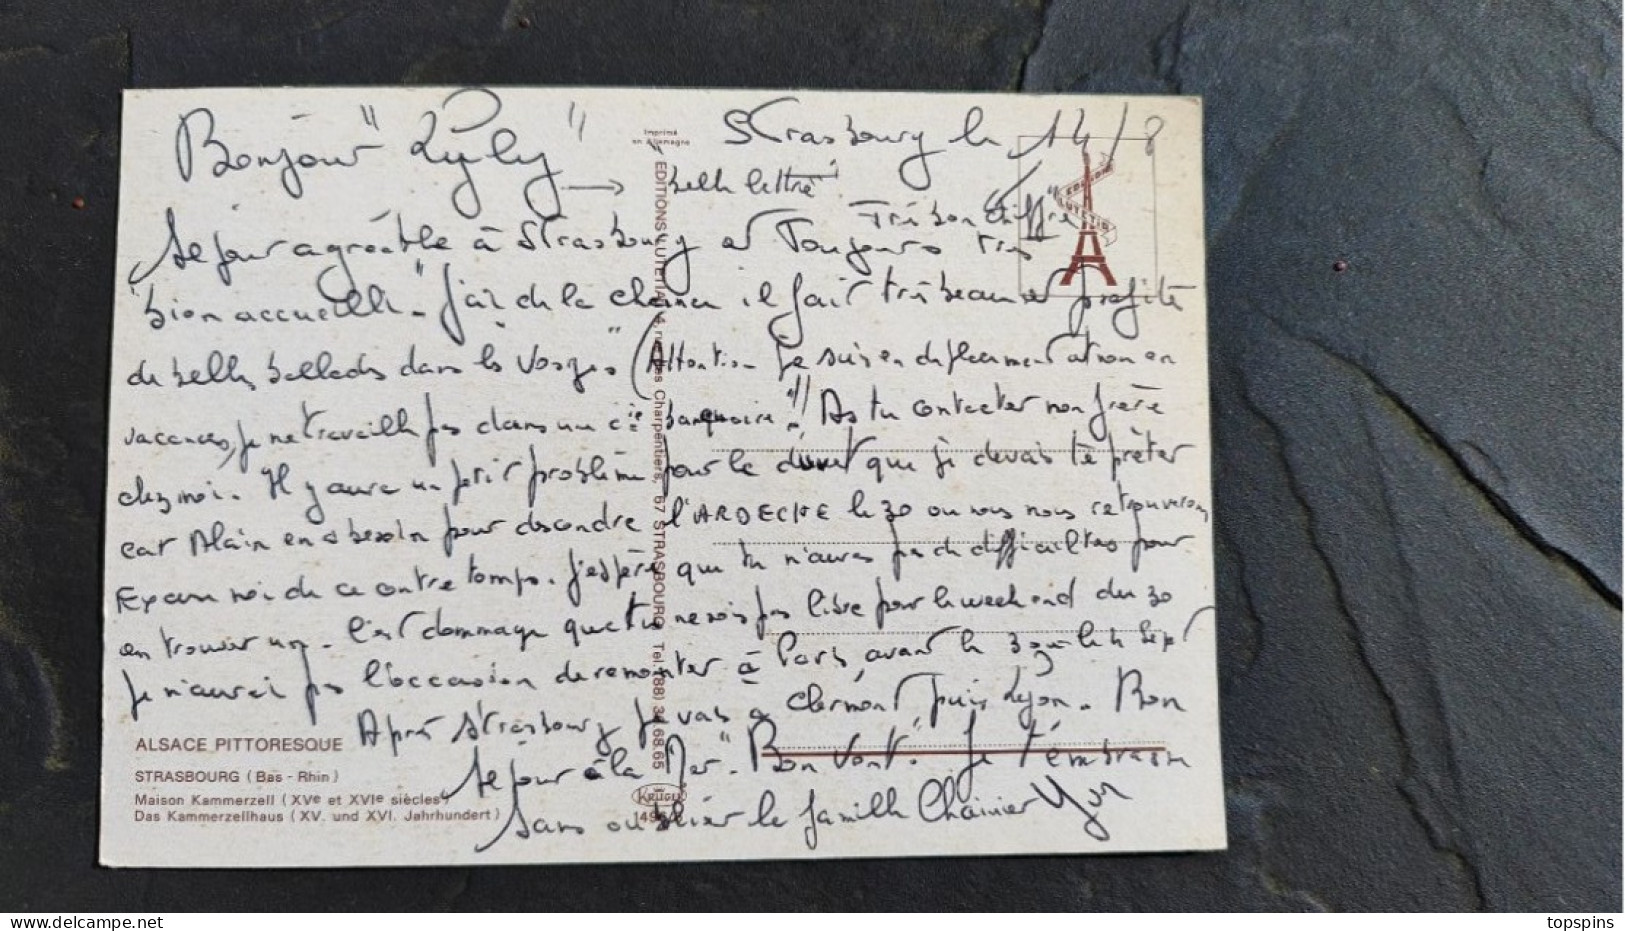 Bonjour "Lyly" Strasbourg le 14/8
→ belle lettre !
Très bon chiffre
Séjour agréable à Strasbourg et Toujours très
bien accueilli. J'ai de la chance il fait très beau et profite
de belles ballades dans les Vosges" (Attention je suis en déplacement ation en
vacances, je ne travaille pas dans une Cie bancaire !! As tu contacter mon frère
chez moi. Il y aura un petit problème pour le duvet que je devais te prêter
car Alain en a besoin pour descendre l'ARDECHE le 30 ou nous nous retrouverons
Excuse moi de ce contre temps. J'espère que tu n'auras pas de difficultés pour
en trouver un. C'est dommage que tu ne sois pas libre pour le week end du 30
Je n'aurai pas l'occasion de remonter à Paris avant le 3 ou le 4 Sept
Après Strasbourg je vais à Clermont puis Lyon. Bon
Séjour à la Mer. "Bon Vent". Je t'embrasse
Sans oublier la famille Chainier
Imprimé
en Allemagne
EDITIONS "LUTETIA", 4, rue des Charpentiers, 67 STRASBOURG Tel. (88) 34.68.65
EDITION
LUTETIA
ALSACE PITTORESQUE
STRASBOURG (Bas - Rhin)
Maison Kammerzell (XVe et XVIe siècles)
Das Kammerzellhaus (XV. und XVI. Jahrhundert)
KRÜGER
topspins